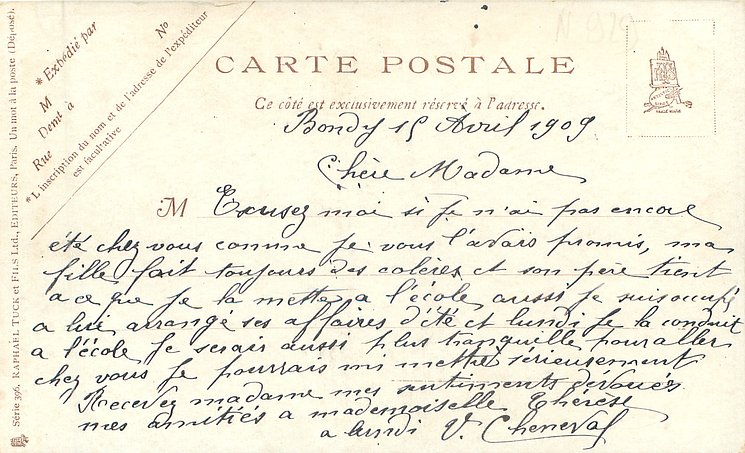 N 979
CARTE POSTALE
Ce côté est exclusivement réservé à l'adresse.
* Expédié par
M
No
Demt à
Rue
* L'inscription du nom et de l'adresse de l'expéditeur
est facultative
Série 396. RAPHAEL TUCK et FILS Ltd., EDITEURS, Paris. Un mot à la poste (Déposé).
Bondy 15 Avril 1909
Chère Madame
M Excusez moi si je n'ai pas encore
été chez vous comme je vous l'avais promis, ma
fille fait toujours des colères et son père tient
a ce que je la mette a l'école aussi je suis occupé
a lui arrangé ses affaires d'été et lundi je la conduit
a l'école je serair aussi plus tranquille pour aller
chez vous je pourrais mi mettre sérieusement
Recevez madame mes sentiments dévoués
mes amitiés a mademoiselle Thérèse
a lundi V. Cheneval